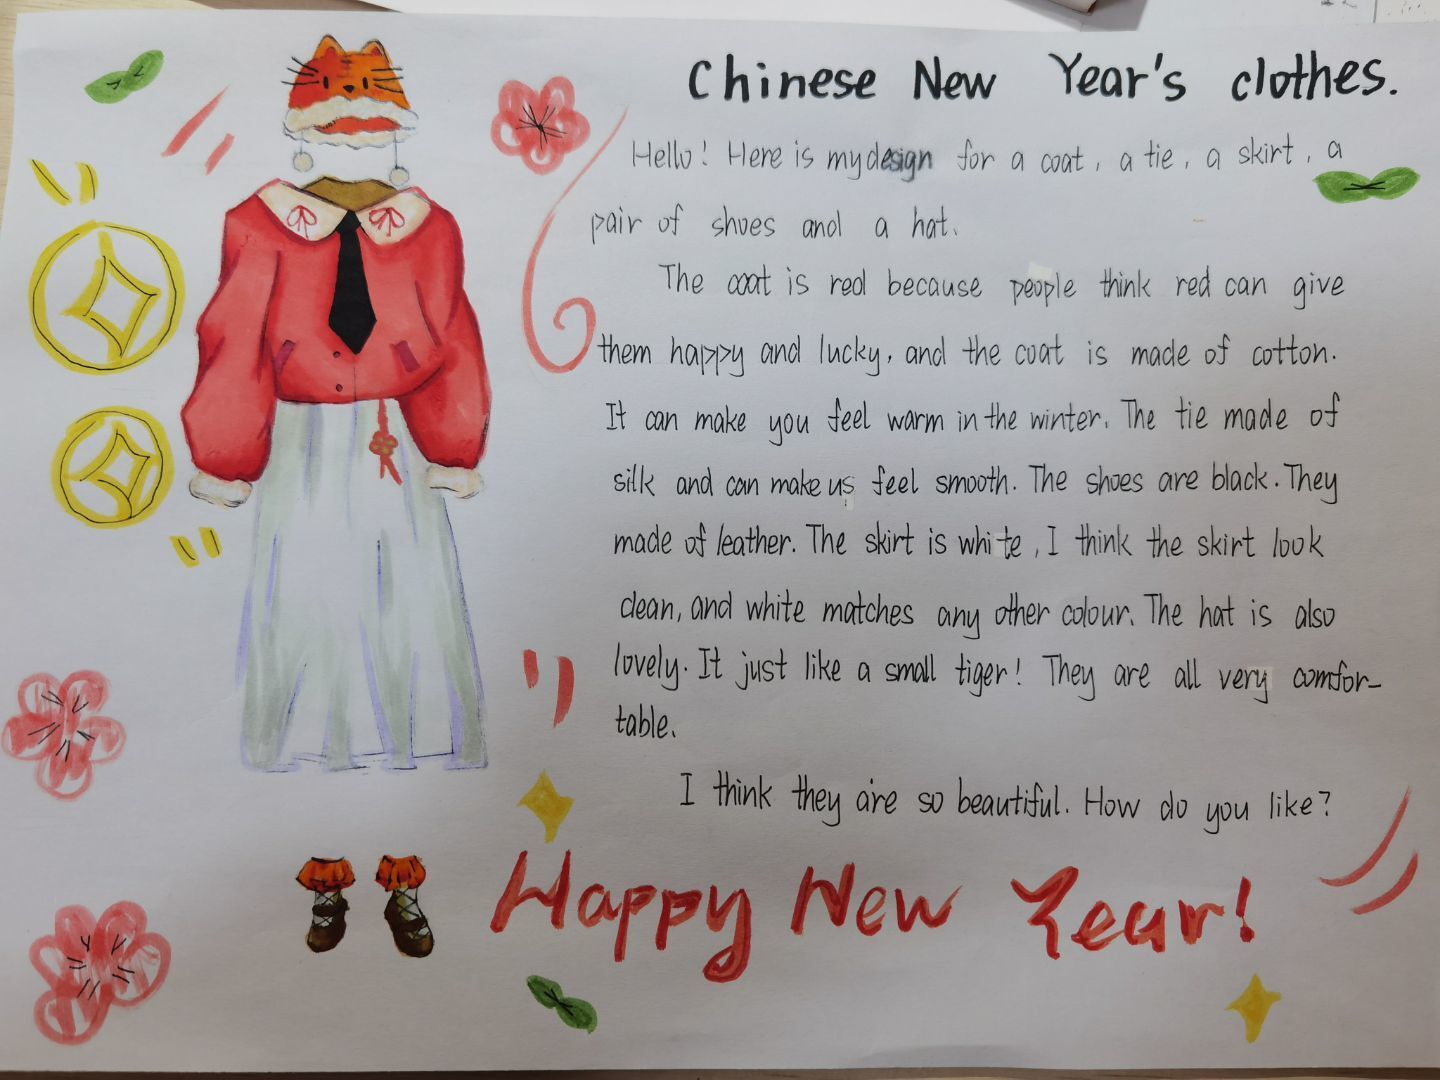 Chinese New Year's clothes.
Hello! Here is my design for a coat, a tie, a skirt, a
pair of shoes and a hat.
The coat is red because people think red can give
them happy and lucky, and the coat is made of cotton.
It can make you feel warm in the winter. The tie made of
silk and can make us feel smooth. The shoes are black. They
made of leather. The skirt is white, I think the skirt look
clean, and white matches any other colour. The hat is also
lovely. It just like a small tiger! They are all very comfor-
table.
I think they are so beautiful. How do you like?
Happy New Year!